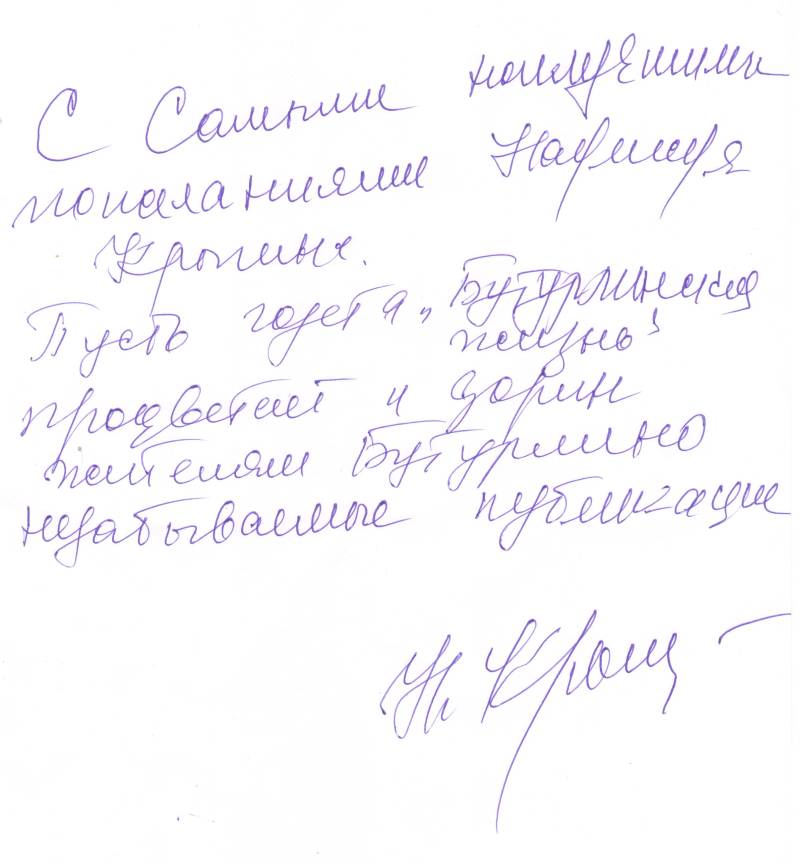 С Самыми наилучшими
пожеланиями Надежда
Крыгина.
Пусть газета „Бутурлинская
жизнь"
процветает и дарит
жителям Бутурлино
незабываемые публикации
Н. Крыг